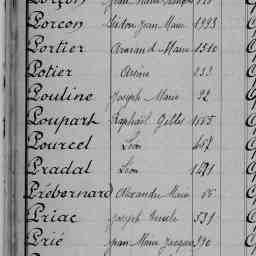 Porcon Isidore Jean Marie 1993
Portier Armand Marie 1510
Potier Arsène 233
Pouline Joseph Marie 92
Poupart Raphaël Gilles 1005
Pourcel Léon 457
Pradal Léon 1491
Prébernard Alexandre Marie 66
Priac Joseph 531
Prié Jean Marie Jacques 390